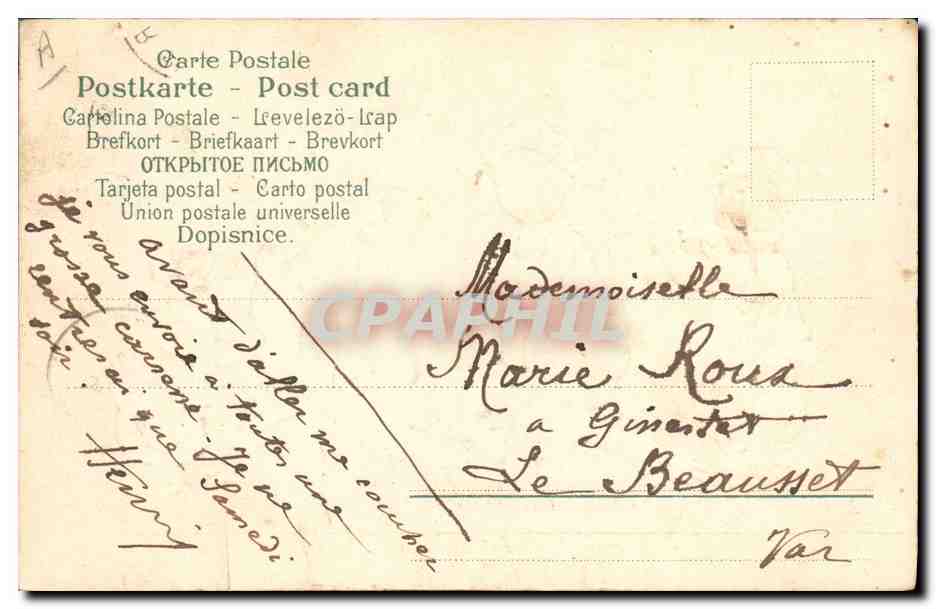 Carte Postale
Postkarte - Post card
Cartolina Postale - Levelezö-Lap
Brefkort - Briefkaart - Brevkort
ОТКРЫТОЕ ПИСЬМО
Tarjeta postal - Carto postal
Union postale universelle
Dopisnice.
avant d'aller me coucher
je vous envoie à toutes une
grosse caresse. Je ne
rentrerai que Samedi
soir.
Henri
Mademoiselle
Marie Roux
a Ginestet
Le Beausset
Var
CPAPHIL